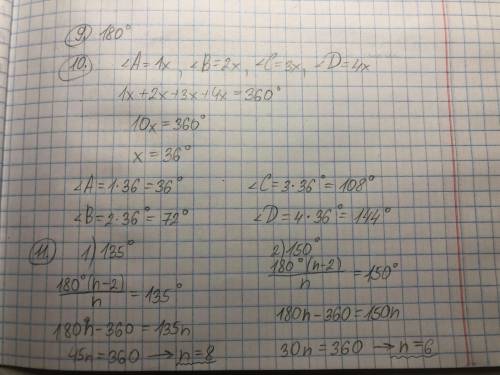 9. 180°
10. ∠A=1x, ∠B=2x, ∠C=3x, ∠D=4x
1x+2x+3x+4x=360°
10x=360°
x=36°
∠A=1·36=36°
∠B=2·36°=72°
∠C=3·36°=108°
∠D=4·36°=144°
11. 1) 135°
180°(n-2)/n = 135°
180°n-360=135n
45n=360 → n=8
2) 150°
180°(n-2)/n = 150°
180n-360=150n
30n=360 → n=6